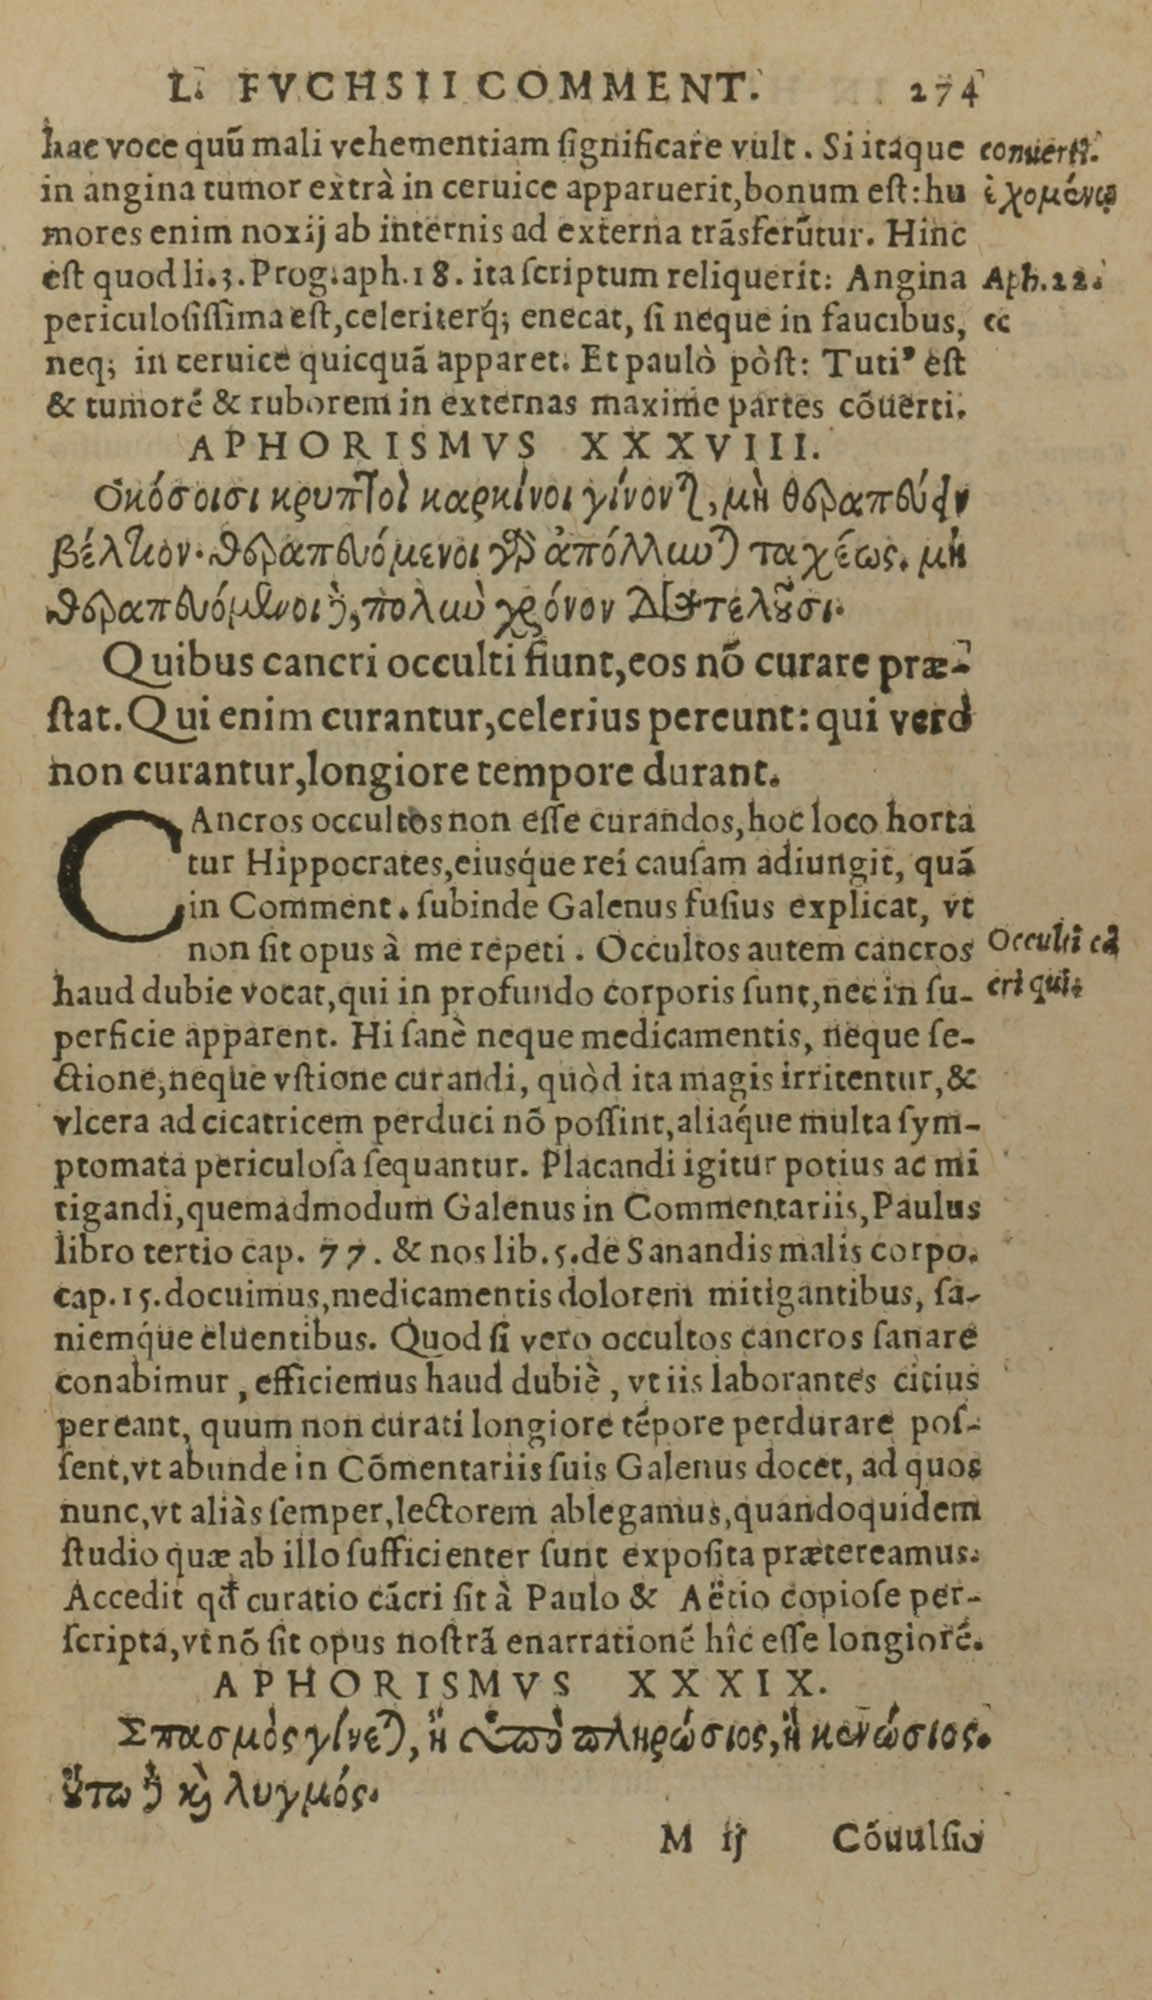 L. FVCHSII COMMENT. 274
hac voce quũ mali vehementiam ſignificare vult. Si itaque
conuerti.
in angina tumor extrà in ceruice apparuerit, bonum eſt: hu
ἐχομένῳ
mores enim noxij ab internis ad externa trãsferũtur. Hinc
eſt quod li.3. Prog. aph. 18. ita ſcriptum reliquerit: Angina
Aph. 22.
periculoſiſſima eſt, celeriterq́; enecat, ſi neque in faucibus,
cc
neq; in ceruice quicquã apparet. Et paulò pòſt: Tutiꝰ eſt
& tumorẽ & ruborem in externas maxime partes cõuerti.
APHORISMVS XXXVIII.
Ὁκόσοισι κρυπτοὶ καρκίνοι γίνονται, μὴ θεραπεύειν
βέλτιον. θεραπευόμενοι γὰρ ἀπόλλωνται ταχέως. μὴ
θεραπευόμενοι δὲ, πολὺν χρόνον διατελοῦσι.
Quibus cancri occulti fiunt, eos nõ curare præ-
ſtat. Qui enim curantur, celerius pereunt: qui verò
non curantur, longiore tempore durant.
CAncros occultos non eſſe curandos, hoc loco horta
tur Hippocrates, eiusq́ue rei cauſam adiungit, quã
in Comment. ſubinde Galenus fuſius explicat, vt
non ſit opus à me repeti. Occultos autem cancros
Occulti cã
haud dubie vocat, qui in profundo corporis ſunt, nec in ſu-
cri qui.
perficie apparent. Hi ſanè neque medicamentis, neque ſe-
ctione, neque vſtione curandi, quòd ita magis irritentur, &
vlcera ad cicatricem perduci nõ poſſint, aliaq́ue multa ſym-
ptomata periculoſa ſequantur. Placandi igitur potius ac mi
tigandi, quemadmodum Galenus in Commentariis, Paulus
libro tertio cap. 77. & nos lib. 5. de Sanandis malis corpo.
cap. 15. docuimus, medicamentis dolorem mitigantibus, ſa-
niemq́ue eluentibus. Quod ſi vero occultos cancros ſanare
conabimur, efficiemus haud dubiè, vt iis laborantes citius
pereant, quum non curati longiore tẽpore perdurare poſ-
ſent, vt abunde in Cõmentariis ſuis Galenus docet, ad quos
nunc, vt aliàs ſemper, lectorem ablegamus, quandoquidem
ſtudio quæ ab illo ſufficienter ſunt expoſita prætereamus.
Accedit qđ curatio cãcri ſit à Paulo & Aëtio copioſe per-
ſcripta, vt nõ ſit opus noſtrã enarrationẽ hîc eſſe longiorẽ.
APHORISMVS XXXIX.
Σπασμὸς γίνεται, ἢ ὑπὸ πληρώσιος, ἢ κενώσιος.
οὕτω δὲ καὶ λυγμός.
M ij Cõuulſio